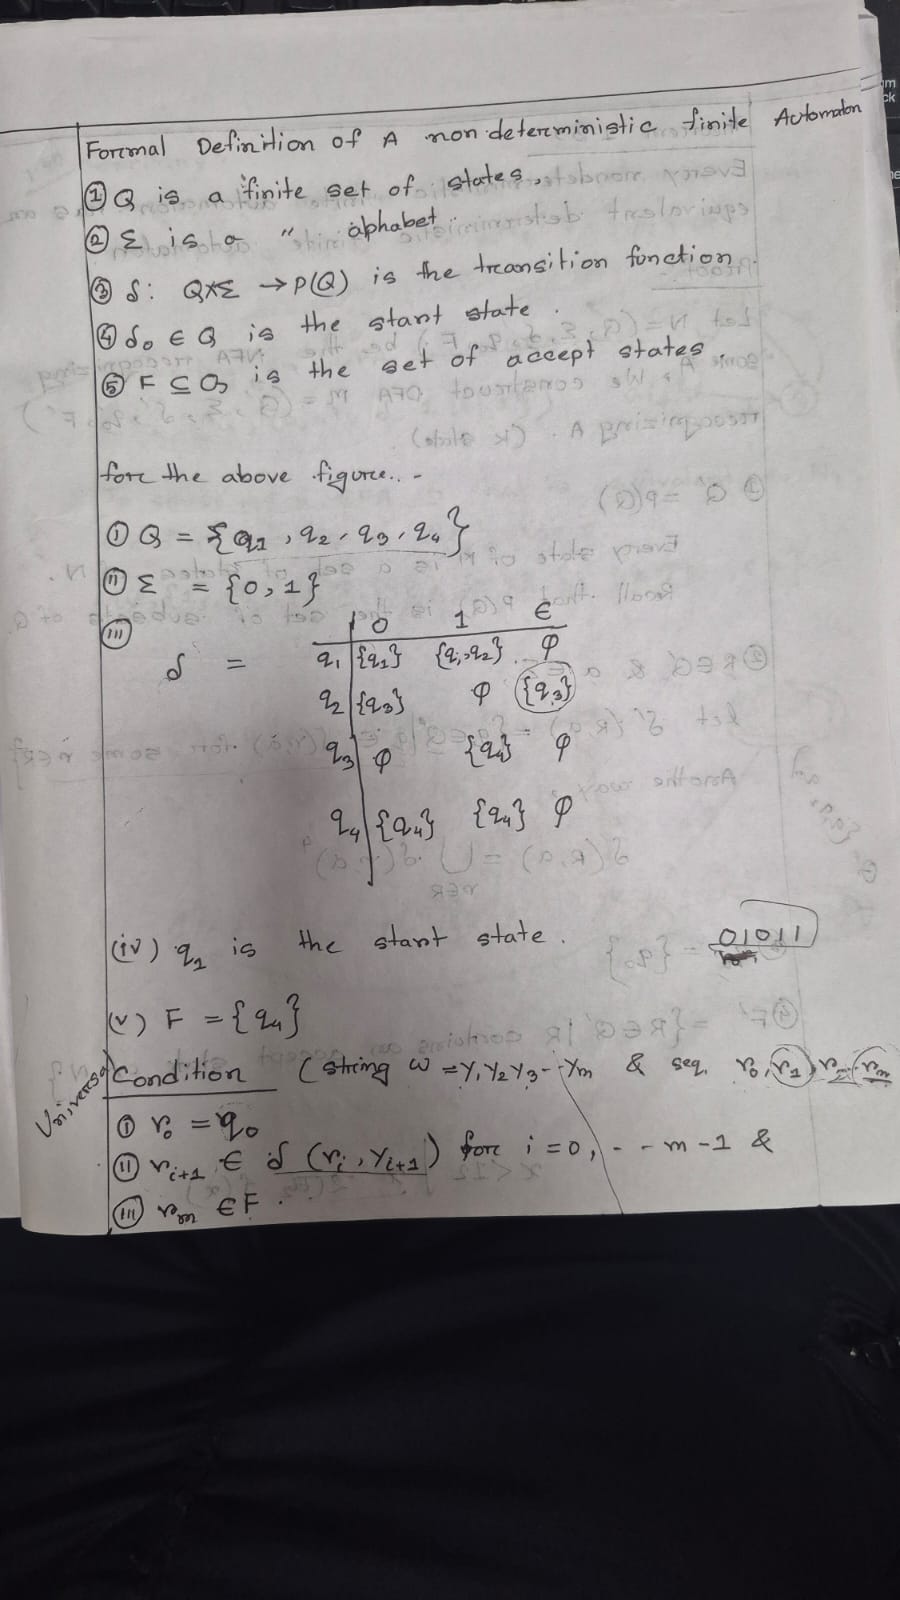 Formal Definition of A non deterministic finite Automaton
① Q is a finite set of states,
② Σ is a " alphabet.
③ δ: Q×Σ → P(Q) is the transition function.
④ δ₀ ∈ Q is the start state.
⑤ F ⊆ Q is the set of accept states.
for the above figure.. -
① Q = {q₁, q₂, q₃, q₄}
ⓘⓘ Σ = {0, 1}
(iii)
0 1 ε
δ = q₁ {q₁} {q₁, q₂} φ
q₂ {q₃} φ {q₃}
q₃ φ {q₄} φ
q₄ {q₄} {q₄} φ
(iv) q₁ is the start state. 01011
(v) F = {q₄}
Universal Condition (string w = y₁ y₂ y₃ - - ym & seq. r₀, r₁, r₂ - rm
(i) r₀ = q₀
(ii) rᵢ₊₁ ∈ δ (rᵢ, yᵢ₊₁) for i = 0, - - m - 1 &
(iii) rm ∈ F.